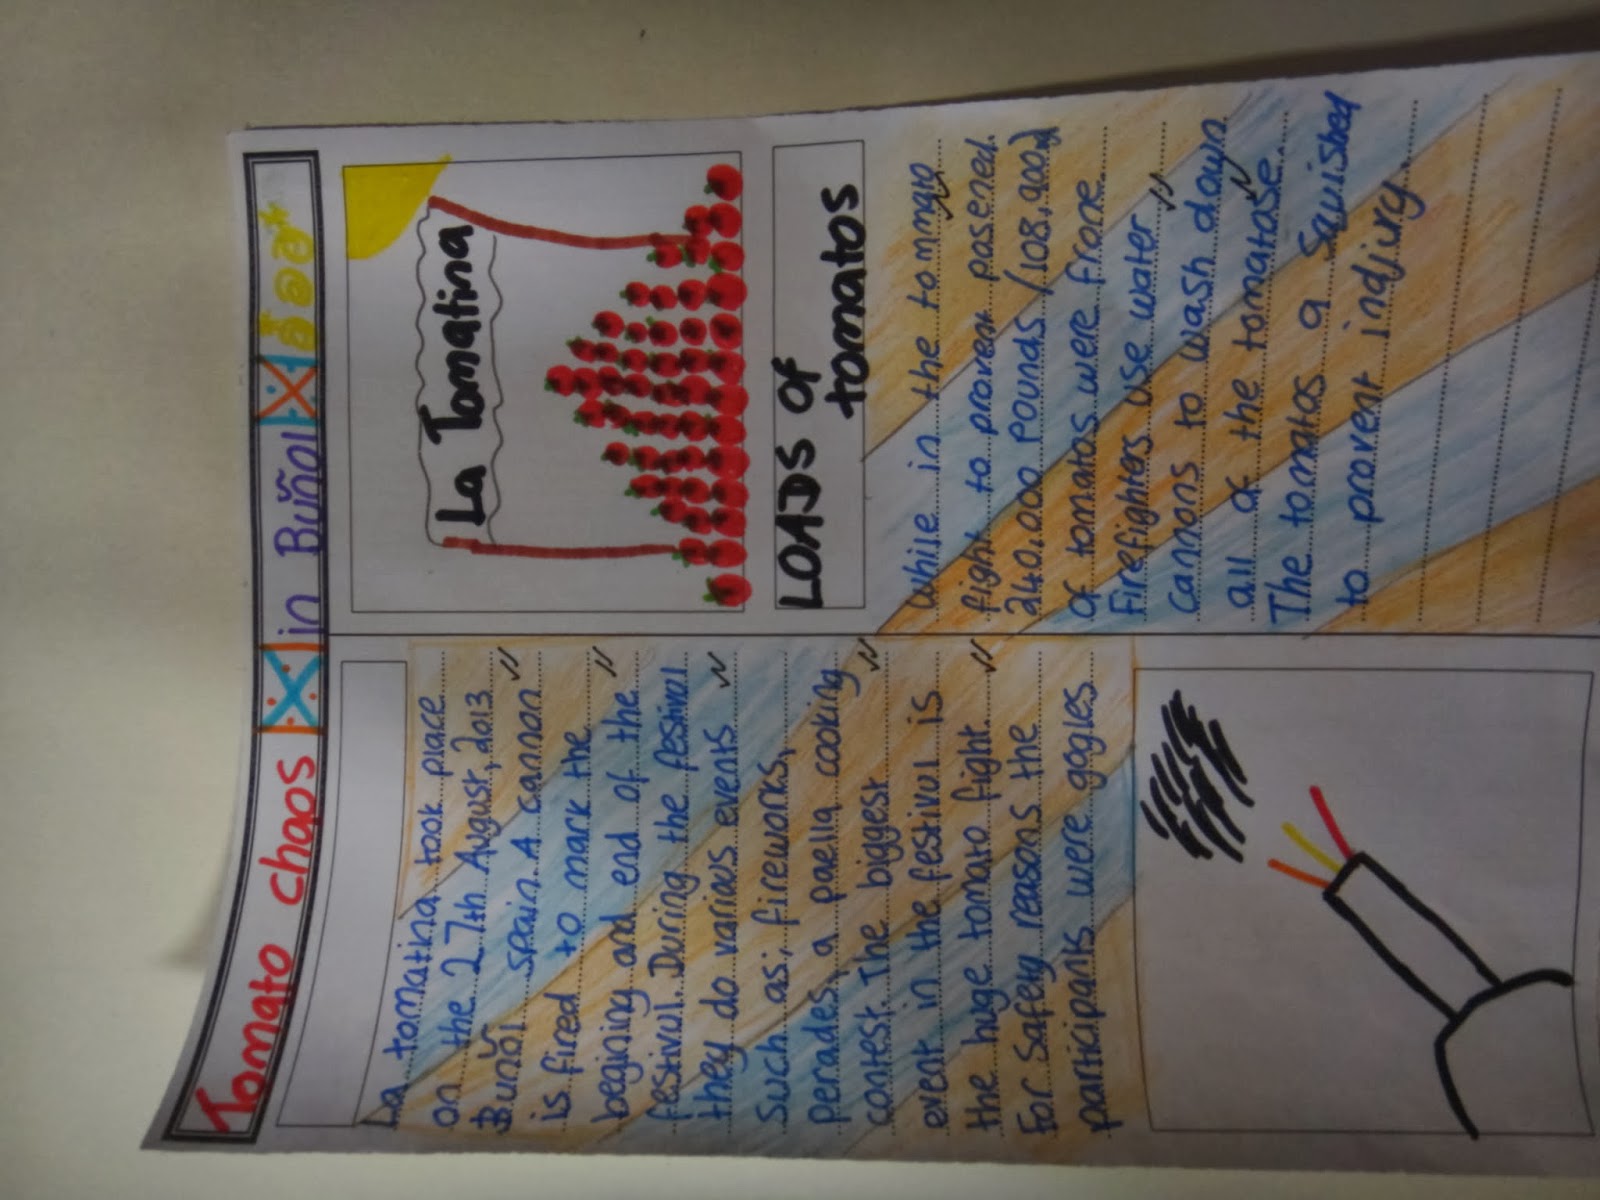 Tomato chaos in Buñol
La tomatina took place
on the 27th August, 2013
Buñol spain. A cannon
is fired to mark the
begining and end of the
festival. During the festival
they do various events
such as; fireworks,
perades, a paella cooking
contest. The biggest
event in the festival is
the huge tomato fight.
For safety reasons the
participants were gogles
La Tomatina
LOADS OF
tomatos
while in the tommato
fight to provent
240,000 pounds /108,
of tomatos were
Firefighters use water
cannons to wash down
all of the tomatose.
The tomatos a Squished
to provent indjury.